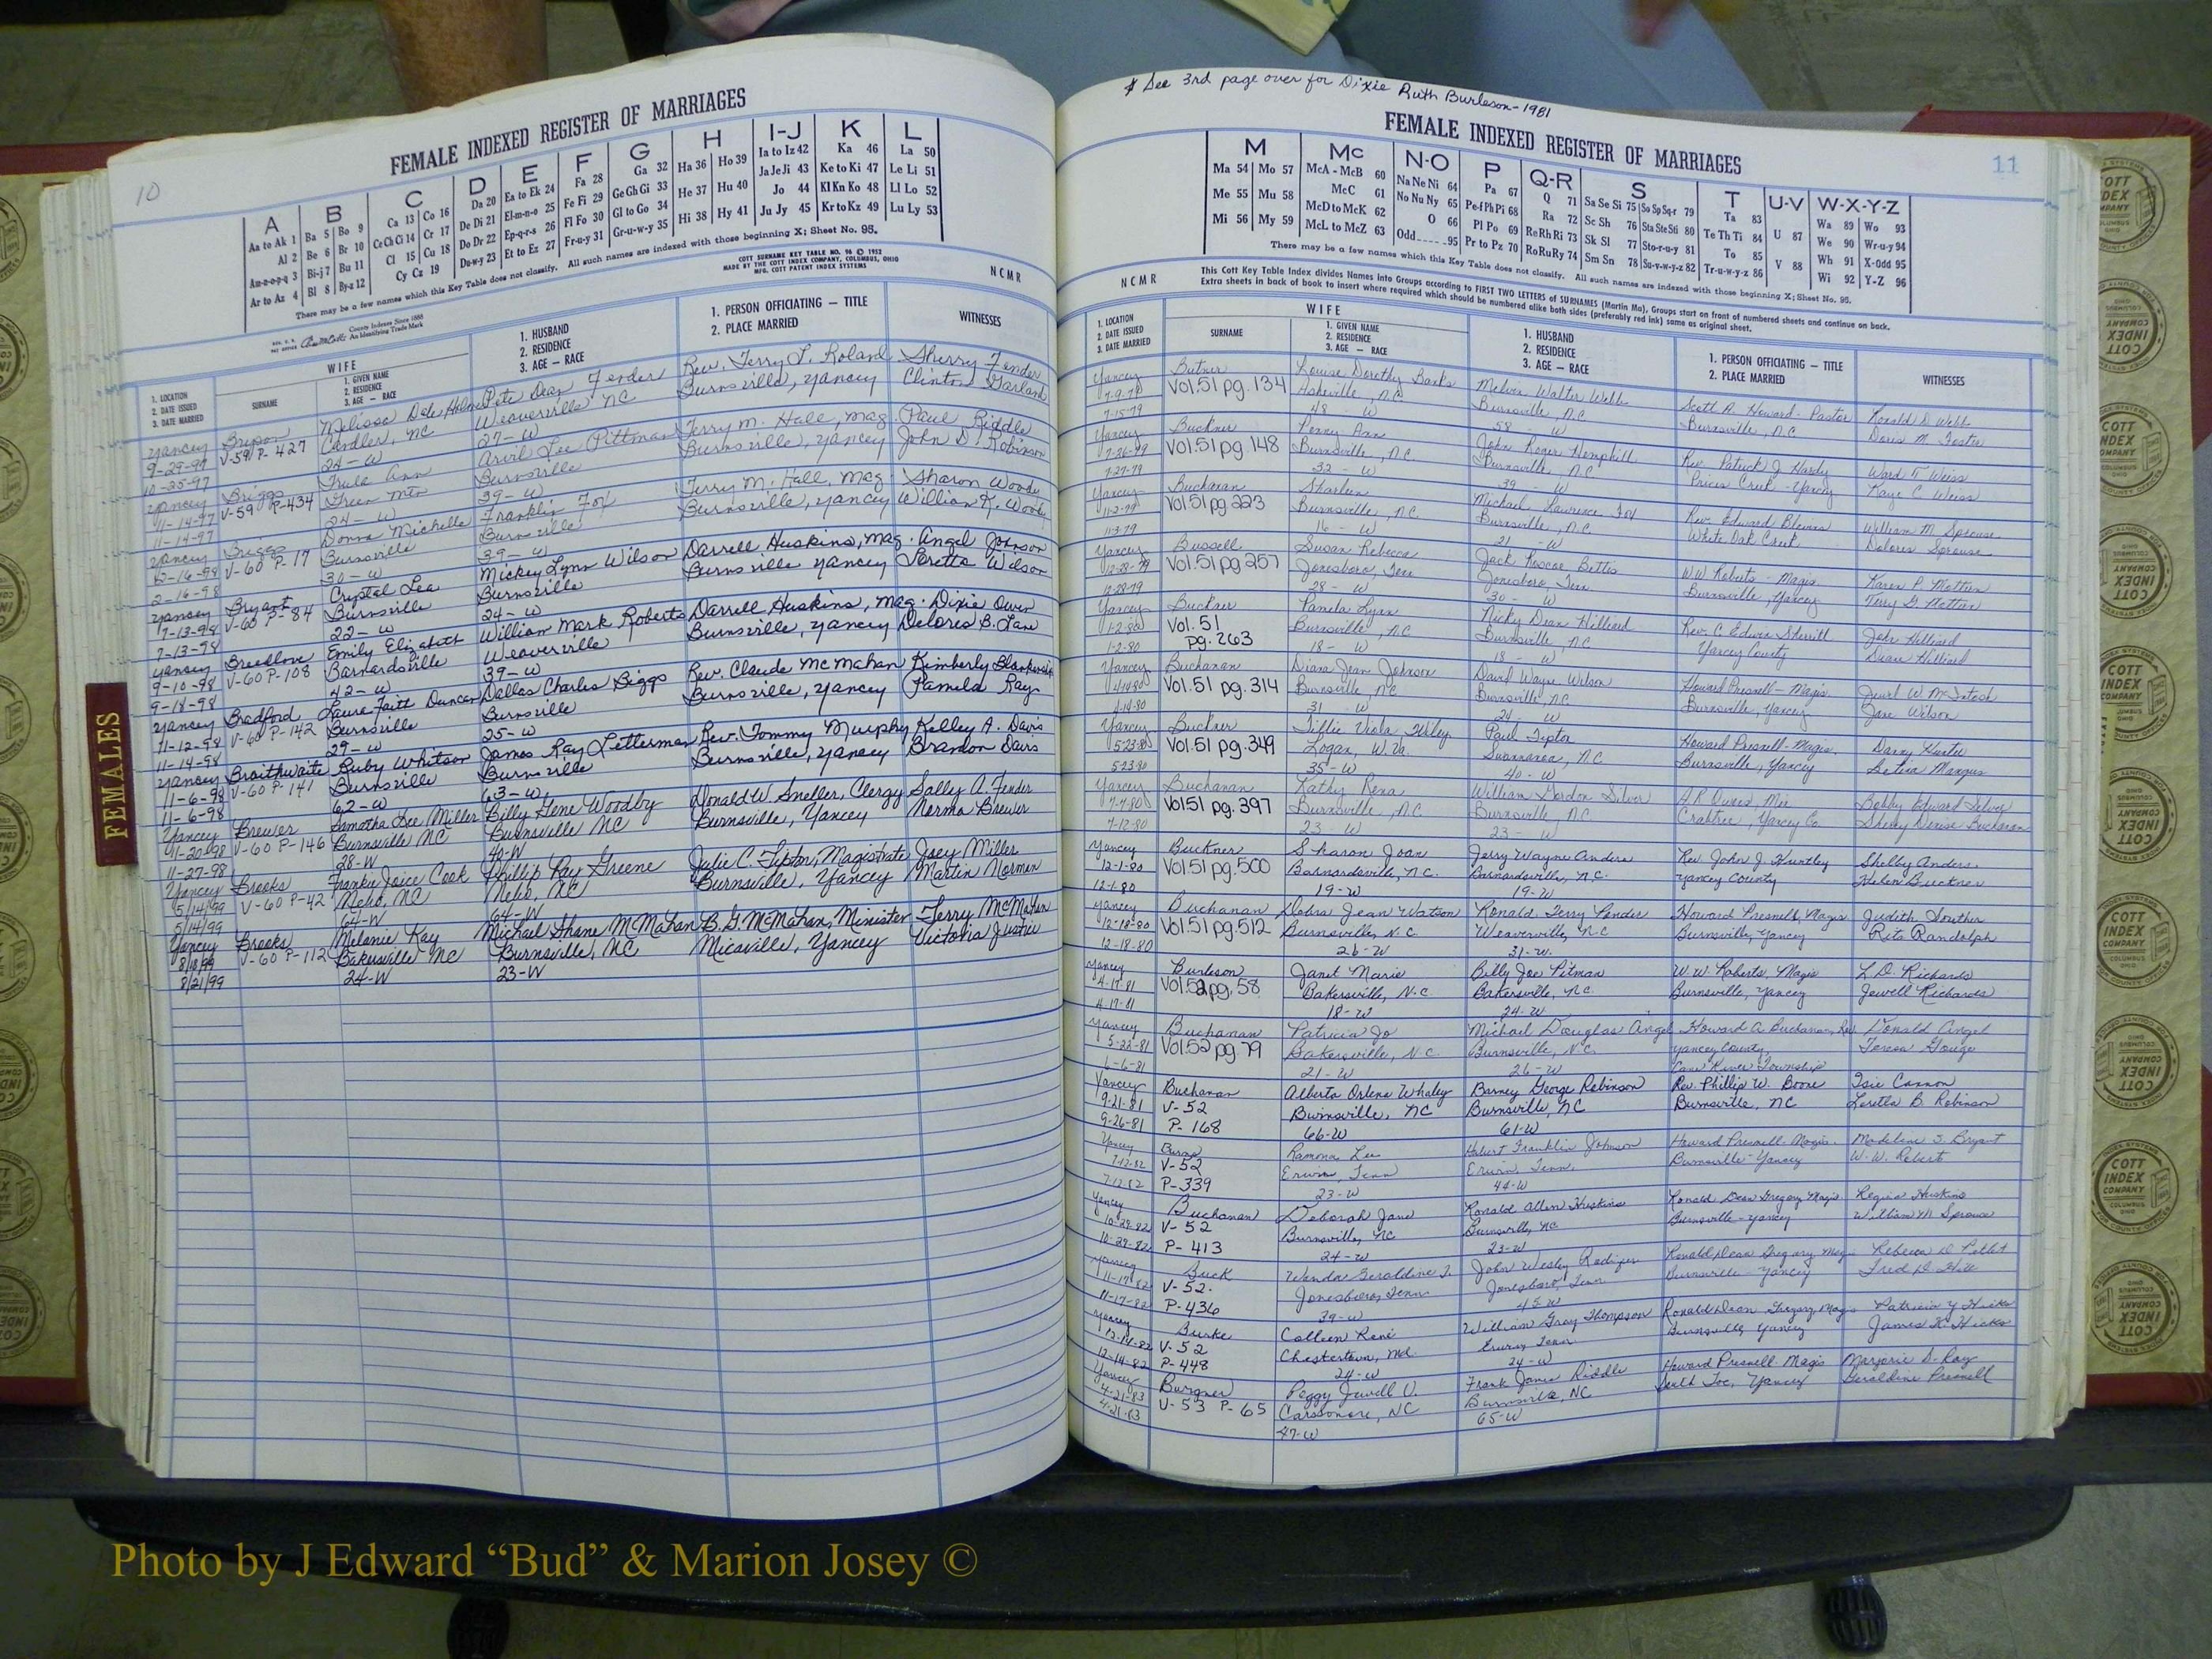 10
FEMALE INDEXED REGISTER OF MARRIAGES
A
Aa to Ak 1
Al 2
Am-n-o-p-q 3
Ar to Az 4
B
Ba 5 Bo 9
Be 6 Br 10
Bi-j 7 Bu 11
Bl 8 By-z 12
C
Ca 13 Co 16
Ce Ch Ci 14 Cr 17
Cl 15 Cu 18
Cy Cz 19
D
Da 20
De Di 21
Do Dr 22
Du-w-y 23
E
Ea to Ek 24
El-m-n-o 25
Ep-q-r-s 26
Et to Ez 27
F
Fa 28
Fe Fi 29
Fl Fo 30
Fr-u-y 31
G
Ga 32
Ge Gh Gi 33
Gl to Go 34
Gr-u-w-y 35
H
Ha 36 Ho 39
He 37 Hu 40
Hi 38 Hy 41
I-J
Ia to Iz 42
Ja Je Ji 43
Jo 44
Ju Jy 45
K
Ka 46
Ke to Ki 47
Kl Kn Ko 48
Kr to Kz 49
L
La 50
Le Li 51
Ll Lo 52
Lu Ly 53
There may be a few names which this Key Table does not classify. All such names are indexed with those beginning X; Sheet No. 95.
County Indexes Since 1888
An Identifying Trade Mark
COTT SURNAME KEY TABLE NO. 96 © 1952
MADE BY THE COTT INDEX COMPANY, COLUMBUS, OHIO
MFG. COTT PATENT INDEX SYSTEMS
N C M R
1. LOCATION
2. DATE ISSUED
3. DATE MARRIED
WIFE
SURNAME
1. GIVEN NAME
2. RESIDENCE
3. AGE — RACE
1. HUSBAND
2. RESIDENCE
3. AGE — RACE
1. PERSON OFFICIATING — TITLE
2. PLACE MARRIED
WITNESSES
Yancey Melissa Dale Holmes Pete Dean Fender Rev. Terry L. Roland Sherry Fender
9-29-97 V-59 P-427 Candler, NC Weaverville NC Burnsville, Yancey Clinton Garland
10-25-97 24-W 27-W
Yancey Briggs Trula Ann Arvil Lee Pittman Terry M. Hall, Mag. Paul Riddle
11-14-97 V-59 P-434 Green Mtn Burnsville Burnsville, Yancey John D. Robinson
11-14-97 24-W 39-W
Yancey Briggs Donna Michelle Franklin Fox Terry M. Hall, Mag. Sharon Woody
2-16-98 V-60 P-17 Burnsville Burnsville Burnsville, Yancey William K. Woody
2-16-98 30-W 39-W
Yancey Bryant Crystal Lea Mickey Lynn Wilson Darrell Huskins, Mag. Angel Johnson
7-13-98 V-60 P-84 Burnsville Burnsville Burnsville Yancey Loretta Wilson
7-13-98 22-W 24-W
Yancey Breedlove Emily Elizabeth William Mark Roberts Darrell Huskins, Mag. Dixie Owen
9-10-98 V-60 P-108 Barnardsville Weaverville Burnsville, Yancey Delores B. Lane
9-18-98 42-W 39-W
Yancey Bradford Laura Faitt Duncan Dallas Charles Biggs Rev. Claude McMahan Kimberly
11-12-98 V-60 P-142 Burnsville Burnsville Burnsville, Yancey Pamela Ray
11-14-98 29-W 25-W
Yancey Braithwaite Ruby Whitson James Ray Letterman Rev. Tommy Murphy Kelley A. Davis
11-6-98 V-60 P-141 Burnsville Burnsville Burnsville, Yancey Brandon Davis
11-6-98 62-W 63-W
Yancey Brewer Samatha Dee Miller Billy Gene Woodby Donald W. Sneller, Clergy Sally A. Fender
11-20-98 V-60 P-146 Burnsville NC Burnsville NC Burnsville, Yancey Norma Brewer
11-27-98 28-W 42-W
Yancey Brooks Frankie Joice Cook Phillip Ray Greene Julie C. Tipton, Magistrate Joey Miller
5/14/99 V-60 P-42 Nebo, NC Nebo, NC Burnsville, Yancey Martin Norman
5/14/99 64-W 64-W
Yancey Brooks Melanie Kay Michael Shane McMahan B.G. McMahan, Minister Terry McMahan
8/18/99 V-60 P-112 Bakersville NC Burnsville, NC Micaville, Yancey Victoria Justice
8/21/99 24-W 23-W
FEMALES
* See 3rd page over for Dixie Ruth Burleson-1981
FEMALE INDEXED REGISTER OF MARRIAGES
11
M
Ma 54 Mo 57
Me 55 Mu 58
Mi 56 My 59
Mc
McA - McB 60
McC 61
McD to McK 62
McL to McZ 63
N-O
Na Ne Ni 64
No Nu Ny 65
O 66
Odd 95
P
Pa 67
Pe-f Ph Pi 68
Pl Po 69
Pr to Pz 70
Q-R
Q 71
Ra 72
Re Rh Ri 73
Ro Ru Ry 74
S
Sa Se Si 75 So Sp Sq-r 79
Sc Sh 76 Sta Ste Sti 80
Sk Sl 77 Sto-r-u-y 81
Sm Sn 78 Su-v-w-y-z 82
T
Ta 83
Te Th Ti 84
To 85
Tr-u-w-y-z 86
U-V
U 87
V 88
W-X-Y-Z
Wa 89 Wo 93
We 90 Wr-u-y 94
Wh 91 X-Odd 95
Wi 92 Y-Z 96
There may be a few names which this Key Table does not classify. All such names are indexed with those beginning X; Sheet No. 95.
This Cott Key Table Index divides Names into Groups according to FIRST TWO LETTERS of SURNAMES (Martin Ma), Groups start on front of numbered sheets and continue on back.
Extra sheets in back of book to insert where required which should be numbered alike both sides (preferably red ink) same as original sheet.
N C M R
1. LOCATION
2. DATE ISSUED
3. DATE MARRIED
WIFE
SURNAME
1. GIVEN NAME
2. RESIDENCE
3. AGE — RACE
1. HUSBAND
2. RESIDENCE
3. AGE — RACE
1. PERSON OFFICIATING — TITLE
2. PLACE MARRIED
WITNESSES
Yancey Butner Louise Dorothy Banks Melvin Walter Webb Scott R. Howard-Pastor Ronald D. Webb
7-9-79 Vol.51 pg.134 Asheville, NC Burnsville, N.C. Burnsville, N.C. Doris M. Foster
7-15-79 48-W 58-W
Yancey Buckner Penny Ann John Roger Hemphill Rev. Patrick J. Hardy Ward T. Weiss
7-26-79 Vol.51 pg.148 Burnsville, NC Burnsville, N.C. Prices Creek-Yancey Kaye C. Weiss
7-27-79 32-W 39-W
Yancey Buchanan Sharleen Michael Lawrence Fox Rev. Edward Blevins William M. Sprouse
11-2-79 Vol.51 pg.223 Burnsville, NC Burnsville, N.C. White Oak Creek Dolores Sprouse
11-3-79 16-W 21-W
Yancey Bussell Susan Rebecca Jack Roscoe Bettis W.W. Roberts-Magis.
12-28-79 Vol.51 pg.257 Jonesboro, Tenn Jonesboro, Tenn Burnsville, Yancey
12-28-79 28-W 30-W
Yancey Buckner Pamela Lynn Nicky Dean Hilliard Rev. C. Edwin Sherrill John Hilliard
1-2-80 Vol. 51 Burnsville, NC Burnsville, NC Yancey County Diane Hilliard
1-2-80 pg. 263 18-W 18-W
Yancey Buchanan Diana Jean Johnson David Wayne Wilson Howard Presnell-Magis. Jewel W. McIntosh
4-14-80 Vol.51 pg. 314 Burnsville, NC Burnsville, NC Burnsville, Yancey Jane Wilson
4-14-80 31-W 24-W
Yancey Buckner Tillie Viola Wiley Paul Tipton Howard Presnell-Magis.
5-23-80 Vol.51 pg.349 Logan, W.Va. Swannanoa, N.C. Burnsville, Yancey
5-23-80 35-W 40-W
Yancey Buchanan Kathy Rena William Gordon Silver Bobby Edward Silver
7-7-80 Vol 51 pg.397 Burnsville, N.C. Burnsville, N.C. Crabtree, Yancey Co. Sherry Denise Buchanan
7-12-80 23-W 23-W
Yancey Buckner Sharon Joan Jerry Wayne Anders Rev. John J. Huntley Shelby Anders
12-1-80 Vol.51 pg.500 Barnardsville, N.C. Barnardsville, N.C. Yancey County Helen Buckner
12-1-80 19-W 19-W
Yancey Buchanan Debra Jean Watson Ronald Terry Ponder Howard Presnell, Magis Judith Souther
12-18-80 Vol.51 pg.512 Burnsville, N.C. Weaverville, N.C Burnsville, Yancey Rita Randolph
12-18-80 26-W 31-W.
Yancey Burleson Janet Marie Billy Joe Pitman W.W. Roberts, Magis L.D. Richards
4-17-81 Vol.52 pg.58 Bakersville, N.C. Bakersville, N.C. Burnsville, Yancey Jewell Richards
4-17-81 18-W 24-W
Yancey Buchanan Patricia Jo Michael Douglas Angel Howard A. Buchanan, Rev. Donald Angel
5-22-81 Vol.52 pg 79 Bakersville, N.C. Burnsville, N.C. Yancey County, Teresa Gouge
6-6-81 21-W 26-W Cane River Township
Yancey Buchanan Alberta Orlena Whaley Barney George Robinson Rev. Phillip W. Boone Isie Cannon
9-21-81 V-52 Burnsville, NC Burnsville, NC Burnsville, NC Loretta B. Robinson
9-26-81 P-168 66-W 61-W
Yancey Ramona Lee Hubert Franklin Johnson Howard Presnell-Magis. Madeline S. Bryant
7-12-82 V-52 Erwin, Tenn Erwin Tenn. Burnsville-Yancey W.W. Roberts
7-12-82 P-339 23-W 44-W
Yancey Buchanan Deborah Jane Ronald Allen Huskins Ronald Dean Gregory Magis. Regina Huskins
10-29-82 V-52 Burnsville, NC Burnsville, NC Burnsville-Yancey William M Sprouse
10-29-82 P-413 24-W 23-W
Yancey Buck Wanda Geraldine T. John Wesley Ronald Dean Gregory Mag
11-17-82 V-52. Jonesboro, Tenn Jonesboro, Tenn Burnsville-Yancey
11-17-82 P-436 39-W 45-W
Yancey Burke Colleen René William Gray Thompson Ronald Dean Gregory, Magis Patricia Y. Hicks
12-14-82 V-52 Chestertown, Md. Erwin, Tenn Burnsville, Yancey James K. Hicks
12-14-82 P-448 24-W 24-W
Yancey Burgner Peggy Jewell V. Frank James Riddle Howard Presnell-Magis Marjorie D. Ray
4-21-83 V-53 P-65 NC Burnsville, NC South Toe, Yancey Geraldine Presnell
4-21-83 47-W 65-W
COTT
INDEX
COMPANY
COLUMBUS
OHIO
Photo by J Edward “Bud” & Marion Josey ©